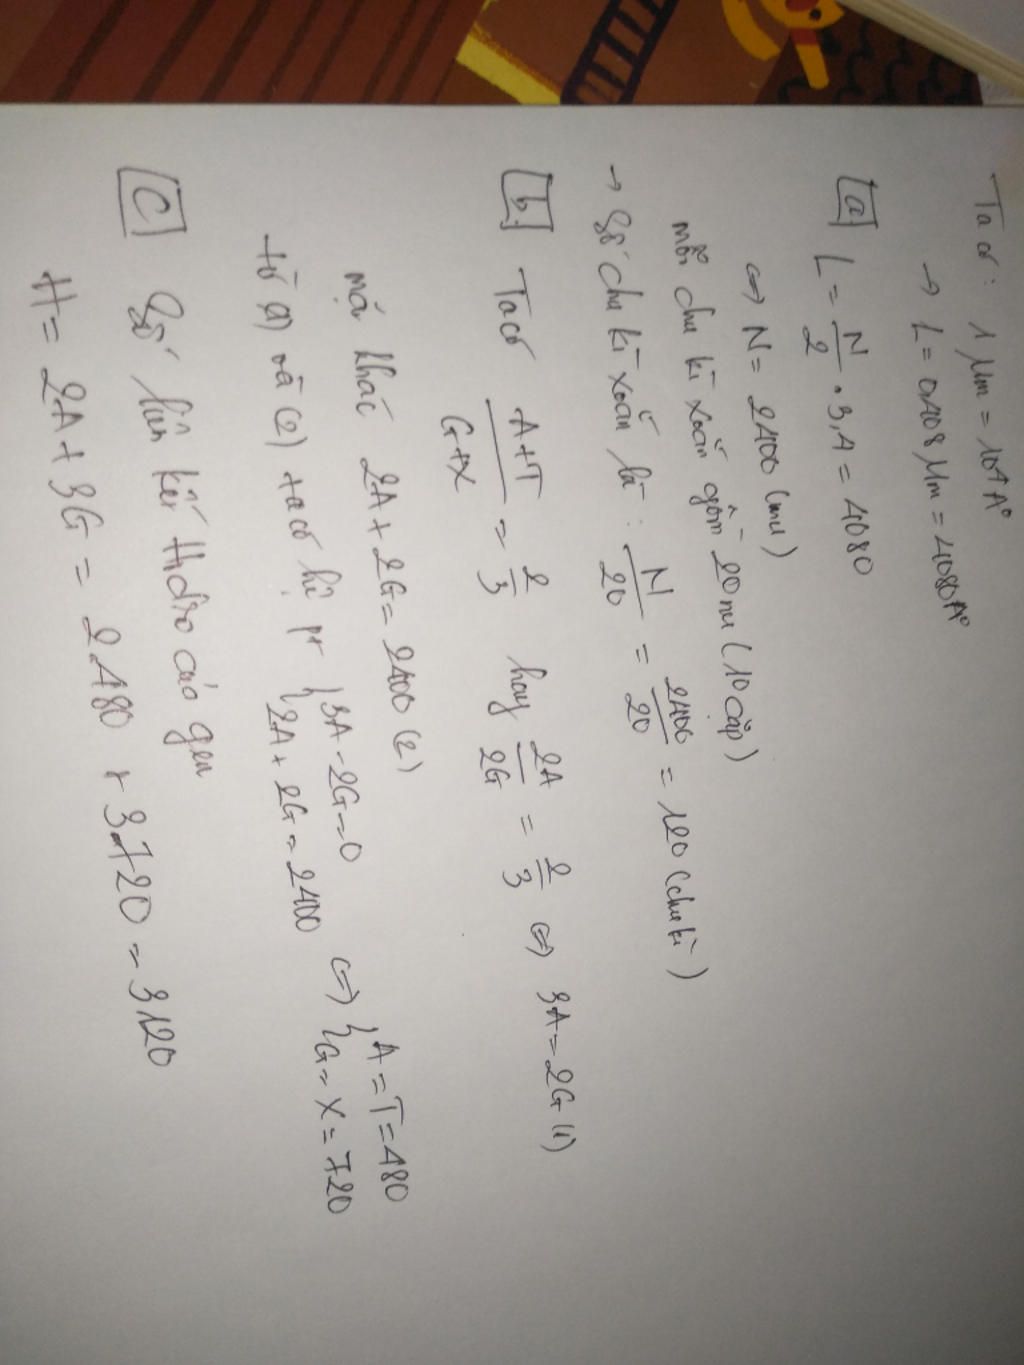 Ta có: 1 µm = 10⁴ A°
→ L = 0,408 µm = 4080 A°
a) L = N/2 . 3,4 = 4080
⇔ N = 2400 (nu)
mỗi chu kì xoắn gồm 20 nu (10 cặp)
→ Số chu kì xoắn là: N/20 = 2400/20 = 120 (chu kì)
b) Ta có (A+T)/(G+X) = 2/3 hay 2A/2G = 2/3 ⇔ 3A = 2G (1)
mặt khác 2A + 2G = 2400 (2)
từ (1) và (2) ta có hệ pt { 3A - 2G = 0 ⇔ { A = T = 480
{ 2A + 2G = 2400 { G = X = 720
c) Số liên kết Hidro của gen
H = 2A + 3G = 2.480 + 3.720 = 3120